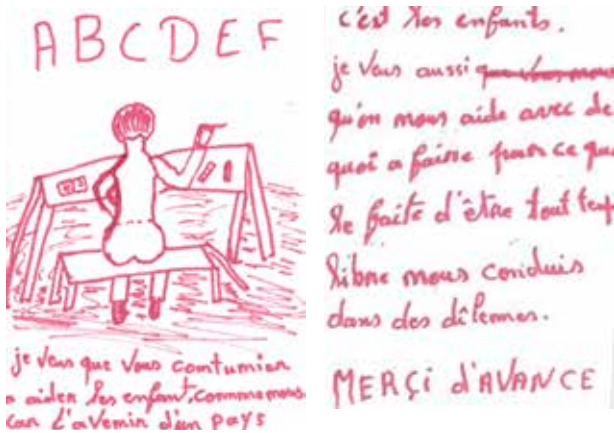 ABCDEF
je veus que vous contumier
a aider les enfant, comme nous.
car l'avenir d'un pays
c'est les enfants.
je veus aussi
qu'on nous aide avec de
quoi a faire parce que
le faite d'être tout temps
libre nous conduis
dans des dilemes.
MERÇi d'AVANCE